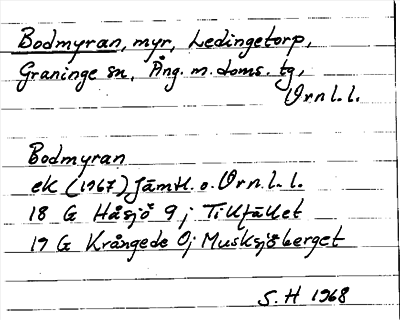 Bodmyran, myr, Ledingetorp,
Graninge sn, Ång. m. doms. tg,
Vrn l.l.
Bodmyran
ek (1967) Jämtl. o. Vrn. l.l.
18 G Håsjö 9 j Tilltäktet
19 G Krångede 0j Musksjöberget
S.H 1968